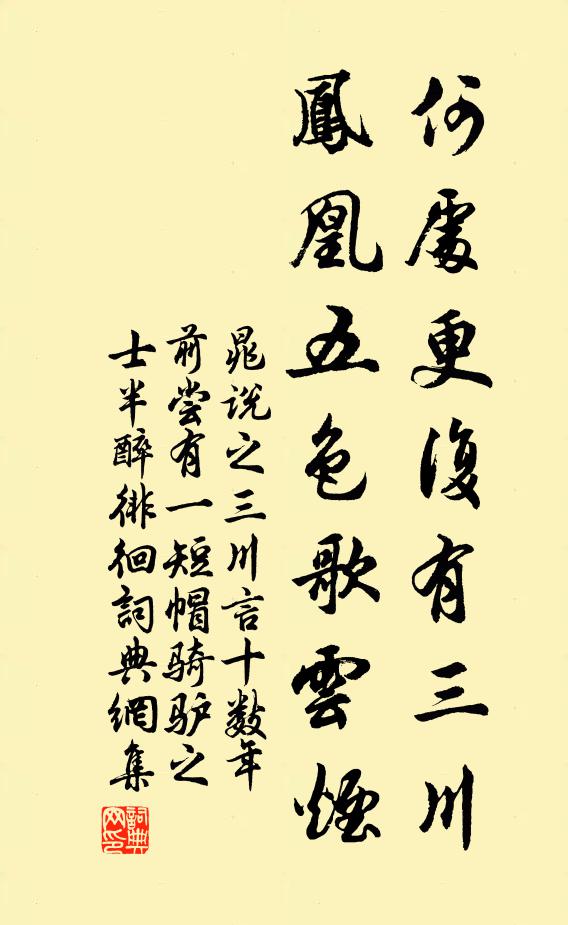 何處更復有三川
鳳凰五色歌雲煙
晁說之三川言十数年
前尝有一短帽骑驴之
士半醉徘徊詞典網集
詞典
网印